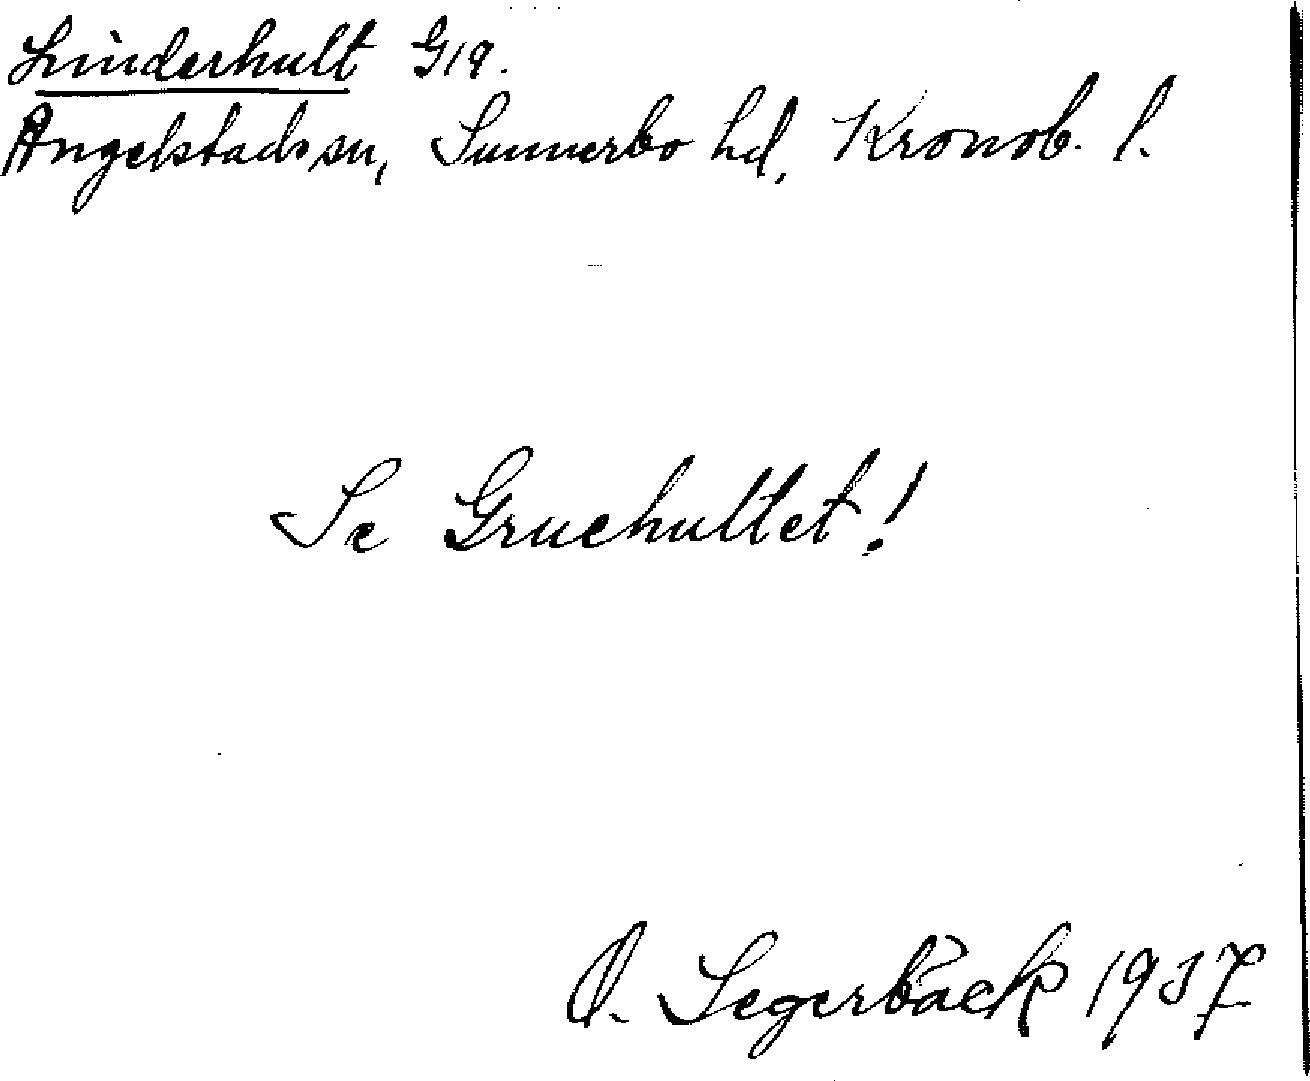 Linderhult G19.
Angelstads sn, Sunnerbo hd, Kronob. l.
Se Gruehultet!
O. Segerbäck 1937